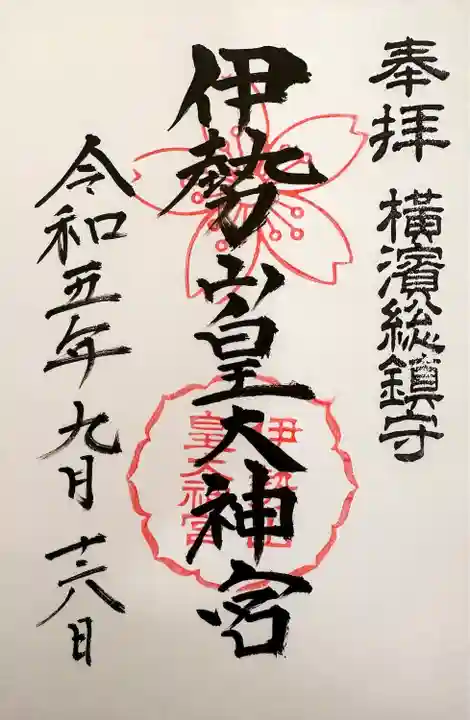 奉拝 横濱総鎮守
伊勢山皇大神宮
伊勢山
皇大神宮
令和五年九月十六日